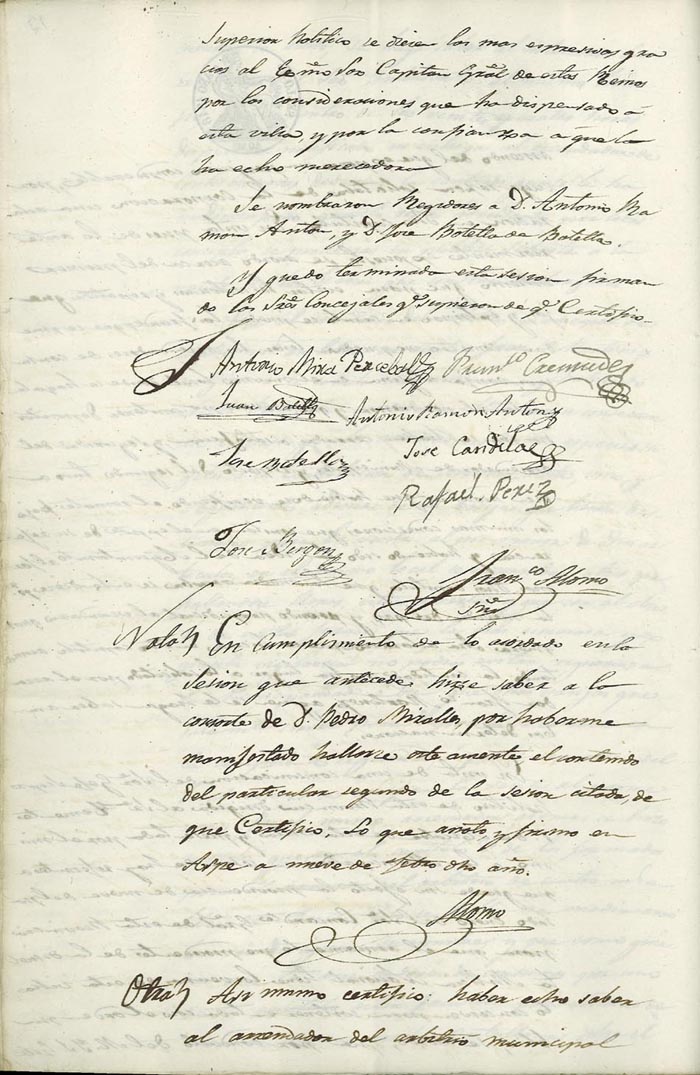 Superior Politico se dieron las mas espresivas gra
cias al Exmo Sor Capitan Gral de estos Reinos
por las consideraciones que ha dispensado á
esta villa, y por la confianza á que la
ha echo merecedora
Se nombraron Regidores a D. Antonio Ra
mon Anton, y D. Jose Botella de Botella.
Y quedo terminada esta sesion firman
do los Sres Concejales q.e supieron de q.e Certifico.
Antonio Mira Percebal Fran.co Cremades
Juan Botella Antonio Ramon Anton
Jose Botella Jose Candela
Rafael Perez
Jose Bergen
Fran.co Alono
Srio
Nota En cumplimiento de lo acordado en la
sesion que antecede hize saber a la
consorte de D. Pedro Miralles, por haberme
manifestado hallarse este ausente, el contenido
del particular segundo de la sesion citada, de
que Certifico. Lo que anoto y firmo en
Aspe a nueve de dho año.
Alono
Otra Asi mismo certifico: haber echo saber
al arrendador del arbitrio municipal